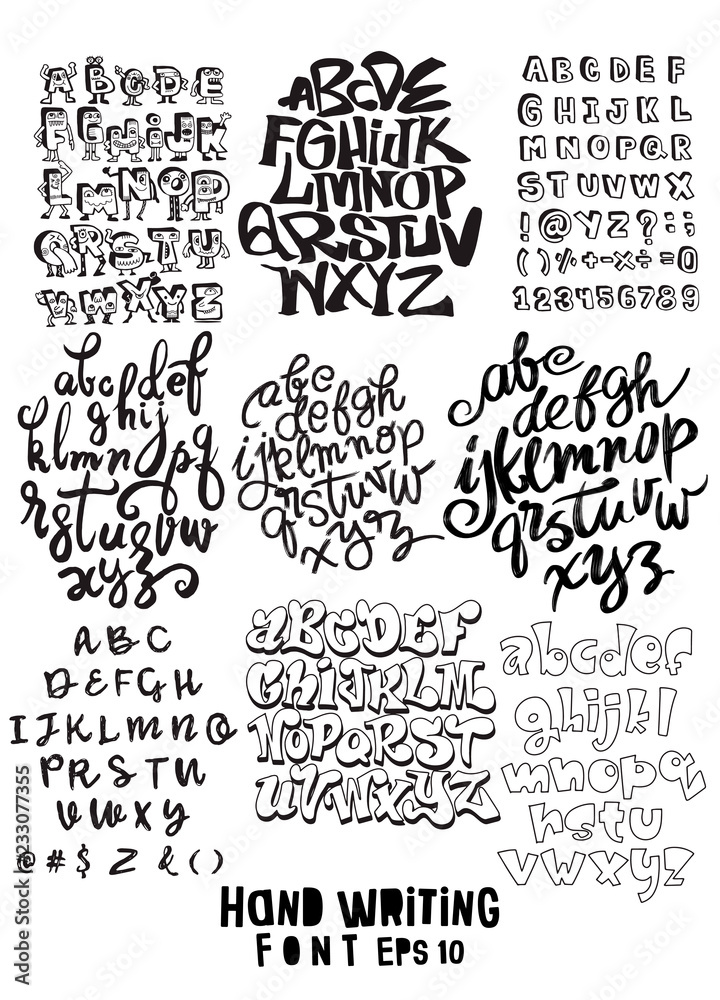 A B C D E
F G H I J K
L M N O P
Q R S T U
V W X Y Z
A B C D E
F G H i J K
L M N O P
Q R S T U V
W X Y Z
A B C D E F
G H I J K L
M N O P Q R
S T U V W X
! @ Y Z ? : ;
( ) % + - × ÷ = 0
1 2 3 4 5 6 7 8 9
a b c d e f
g h i j
k l m n o p q
r s t u v w
x y z
a b c
d e f g h
i j k l m n o p
q r s t u v w
x y z
a b c
d e f g h
i j k l m n o p
q r s t u v w
x y z
A B C
D E F G H
I J K L M N O
P R S T U
V W X Y
@ # $ Z & ( )
A B C D E F
G H i J K L M
N O P Q R S T
U V W X Y Z
a b c d e f
g h i j k l
m n o p q
h s t u
v w x y z
HAND WRITING
FONT EPS 10
Adobe Stock | #233077355